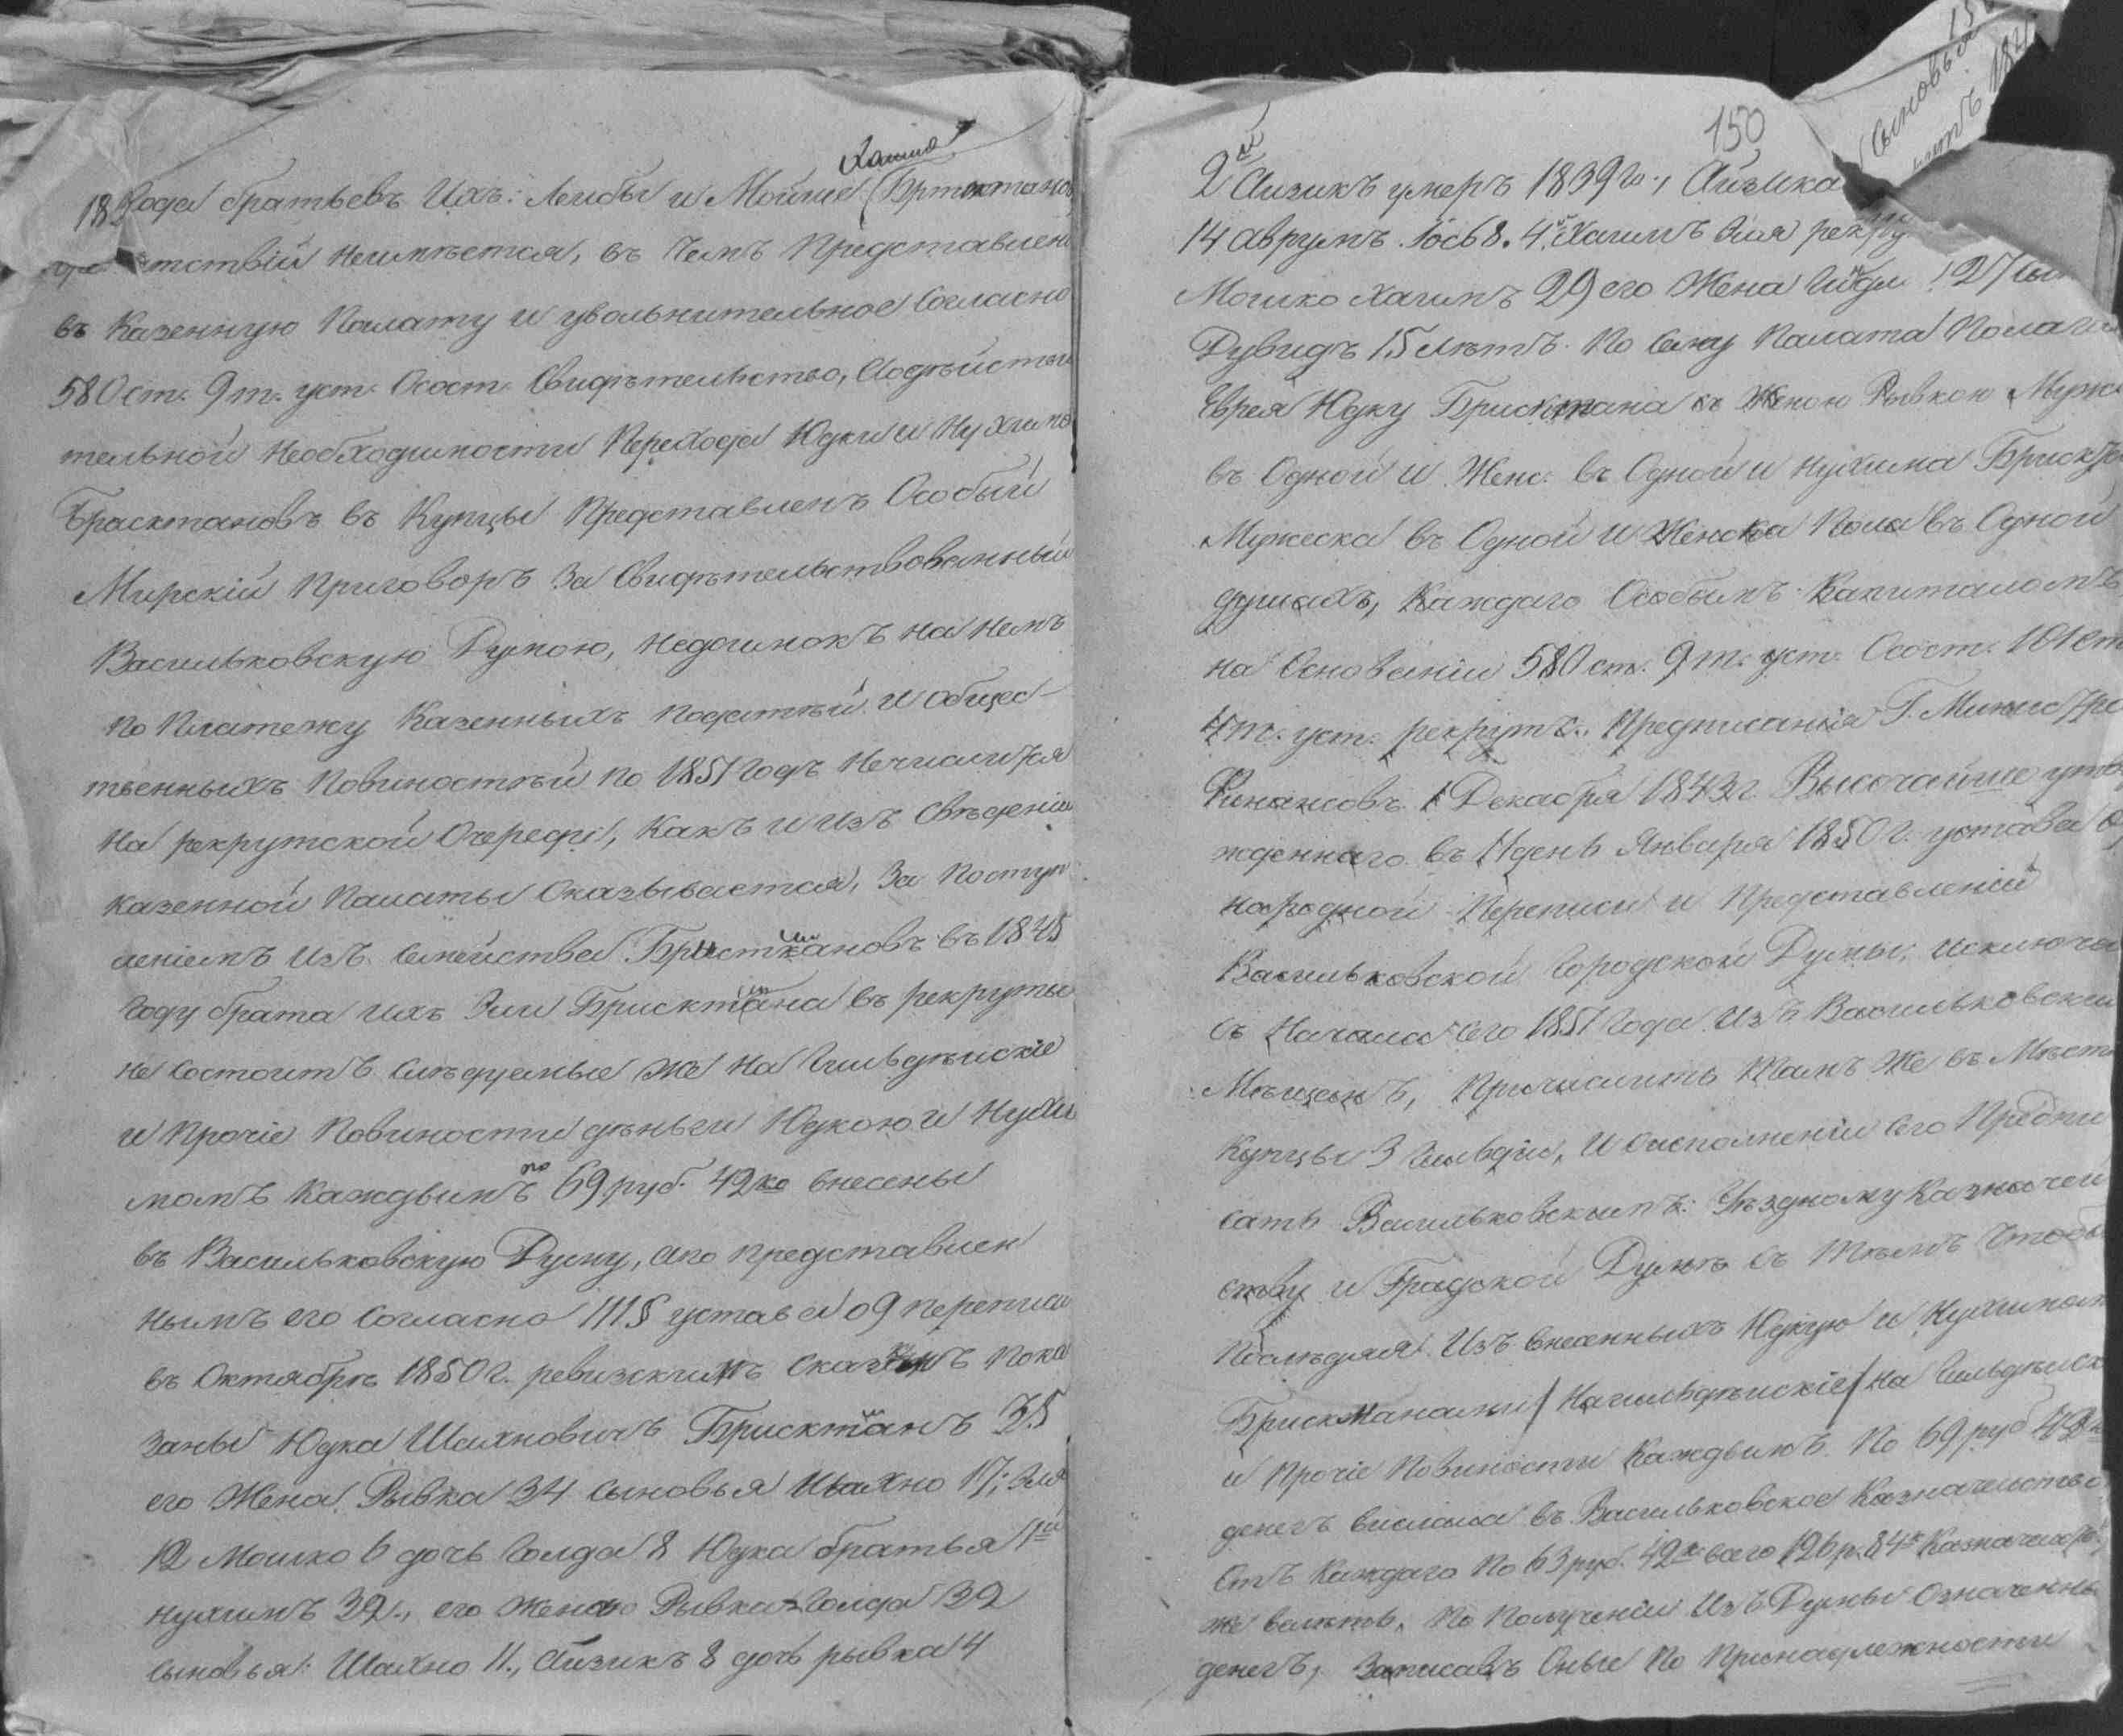 Хаима
года братьевъ Ихъ: Лейбы и Мошие (
тствій неимѣется, въ Чемъ Представлен
въ Казенную Палату и увольнительное Согласно
580 ст. 9 т. уст. Осост. Свидѣтельство,
тельной Необходимости Перехода Юдки и Нухима
Брасктановъ въ Купцы Представленъ Особый
Мирскій Приговоръ За Свидѣтельствованный
Васильковскую Думою, недоимокъ на Немъ
по Платежу Казенныхъ податѣй и общес-
твенныхъ Повиностѣй по 1851 годъ Нечислится
На рекрутской Очереди, Какъ и изъ Свѣденіи
Казенной Палаты Оказывается, За Поступ
леніемъ изъ Семейства Бристкановъ въ 1845
году брата ихъ Эли Брисктана въ рекруты
не Состоитъ Слѣдуемые Же На Гильдѣйскіе
и Прочіе Повиности дѣньги Юдкою и Нухи
момъ Каждымъ по 69 руб. 42 ко внесены
въ Васильковскую Думу, апо представлен
нымъ его Согласно 111§ устава о 9 переписи
въ Октябрѣ 1850 г. ревизскимъ Пока
Заны Юдка Шахновичъ Брисктанъ 35
его Жена Рывка 34 Сыновья Шахно 17; Эля
12 Мошко 6 дочь Голда 8 Юдка братья 1й
Нухимъ 32., его Жена Рывка-Голда 32
Сыновья: Шахно 11., Айзикъ 8 дочь рывка 4
150
2й Айзикъ умеръ 1839 го., Айзика
14 Аврумъ. Іось 8. 4й Хаимъ Эля рекру
Мошко Хаимъ 29 его Жена 27
Дувидъ 15 лѣтъ. По Сему Палата Полаги
Еврея Юдку Брисктана съ Женою Рывкою Муж.
въ Одной и Женс. въ Одной и Нухима Бриск
Мужеска въ Одной и Женска Пола въ Одной
душахъ, Каждаго Особымъ Капиталомъ
на Основаніи 580 ст. 9 т. уст. Осост. 101 ст
4 т. уст. рекрутс., Предписанія Г. Министра
Финансовъ 1 Декабря 1843 г Высочайше утв
жденнаго въ 11 день Января 1850 г. устава о
народной Переписи и Представленіи
Васильковской Городской Думы, исключа
съ Начала Сего 1851 Года Изъ Васильковски
Мѣщанъ, Причислить Тамъ Же въ Мѣст
Купцы 3 Гильдіи, И Оисполненіи Сего Предпи
сать Васильковскимъ: Уѣздному Казначей
ству и Градской Думѣ съ Тѣмъ Чтобы
Послѣдняя Изъ внесенныхъ Юдкую и Нухимом
Брискманами / Нагильдѣйскіе / на Гильдѣйск
и Прочіе Повиности Каждымъ По 69 руб 42 к
денегъ вислала въ Васильковское Казначейство
Отъ Каждаго По 63 руб. 42 к всего 126 р. 84 к
же По Полученіи Изъ Думы Означенны
денегъ, Записавъ Оные По Принадлежности
Сыновья